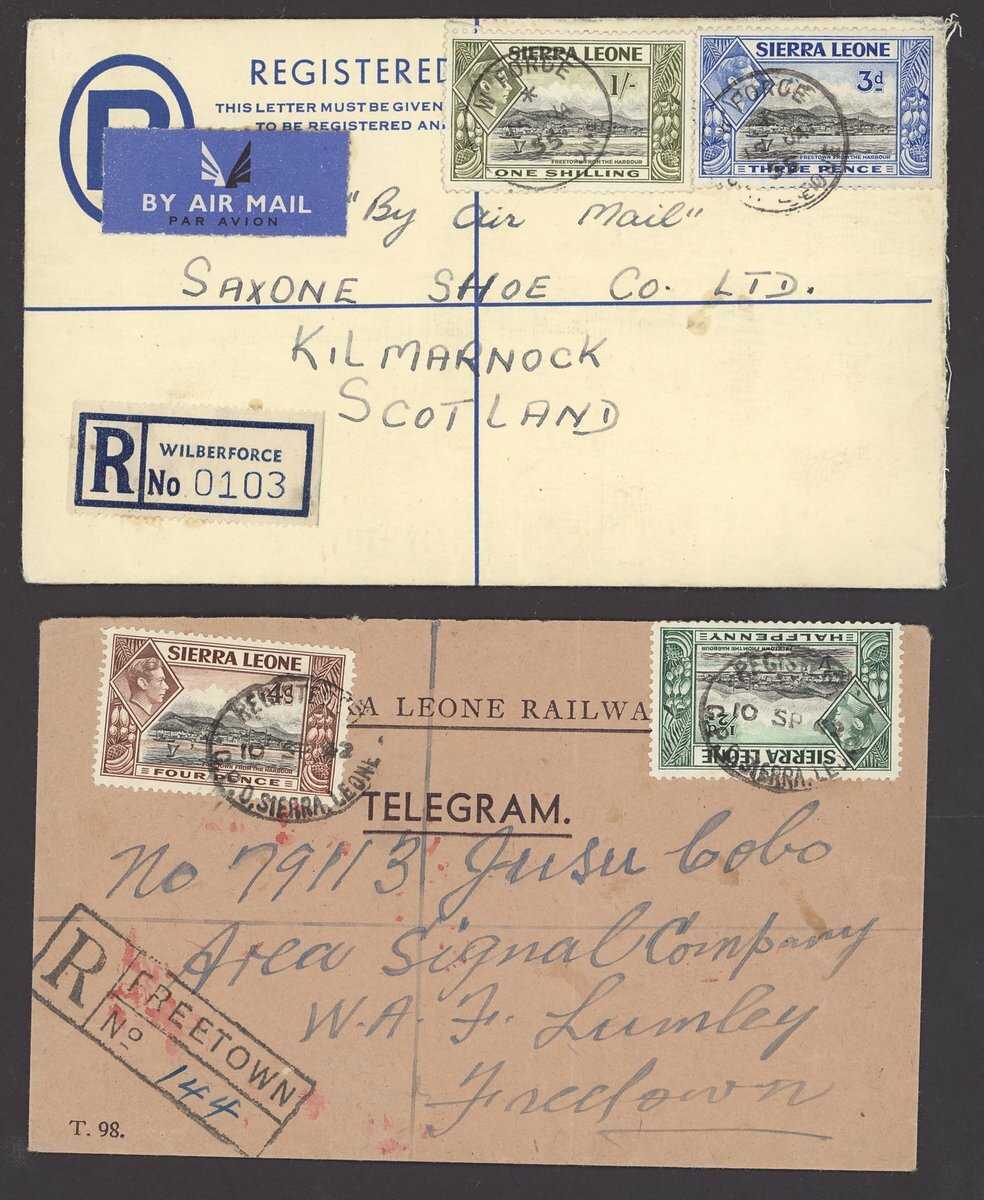 REGISTERED
THIS LETTER MUST BE GIVEN
TO BE REGISTERED AN
R
BY AIR MAIL
PAR AVION
SIERRA LEONE
1/-
FREETOWN FROM THE HARBOUR
ONE SHILLING
SIERRA LEONE
3d
FREETOWN FROM THE HARBOUR
THREE PENCE
W'FORCE
55
FORCE
"By Air Mail"
SAXONE SHOE CO. LTD.
KILMARNOCK
SCOTLAND
R WILBERFORCE
No 0103
SIERRA LEONE
4d
FREETOWN FROM THE HARBOUR
FOUR PENCE
10 SP
G.P.O. SIERRA. LEONE
HALFPENNY
FREETOWN FROM THE HARBOUR
½d
SIERRA LEONE
10 SP
A LEONE RAILWA
TELEGRAM.
No 79113 Jusu Cobo
Area Signal Company
W.A.F. Lumley
Freetown
R FREETOWN
No 144
T. 98.